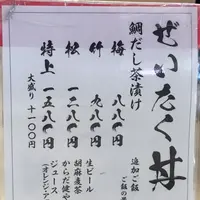 ぜいたく丼
追加ご飯
ご飯の
鯛だし茶漬け
梅 八八〇円
竹 九八〇円
松 一二八〇円
特上 一五八〇円
大盛り 十一〇〇円
生ビール
胡麻麦茶
からだ健や
ジュース
(オレンジ・ア